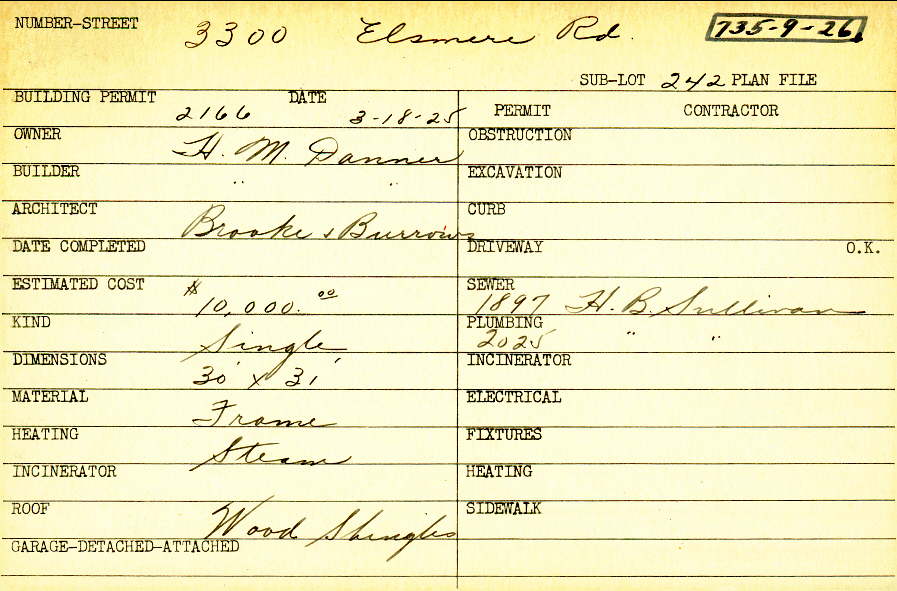 NUMBER-STREET 3300 Elsmere Rd. 735-9-26
SUB-LOT 242 PLAN FILE
BUILDING PERMIT 2166 DATE 3-18-25 PERMIT CONTRACTOR
OWNER H. M. Danner OBSTRUCTION
BUILDER " " EXCAVATION
ARCHITECT Brooke & Burrows CURB
DATE COMPLETED DRIVEWAY O.K.
ESTIMATED COST $10,000.00 SEWER 1897 H. B. Sullivan
KIND Single PLUMBING 2025 " "
DIMENSIONS 30' x 31' INCINERATOR
MATERIAL Frame ELECTRICAL
HEATING Steam FIXTURES
INCINERATOR HEATING
ROOF Wood Shingles SIDEWALK
GARAGE-DETACHED-ATTACHED